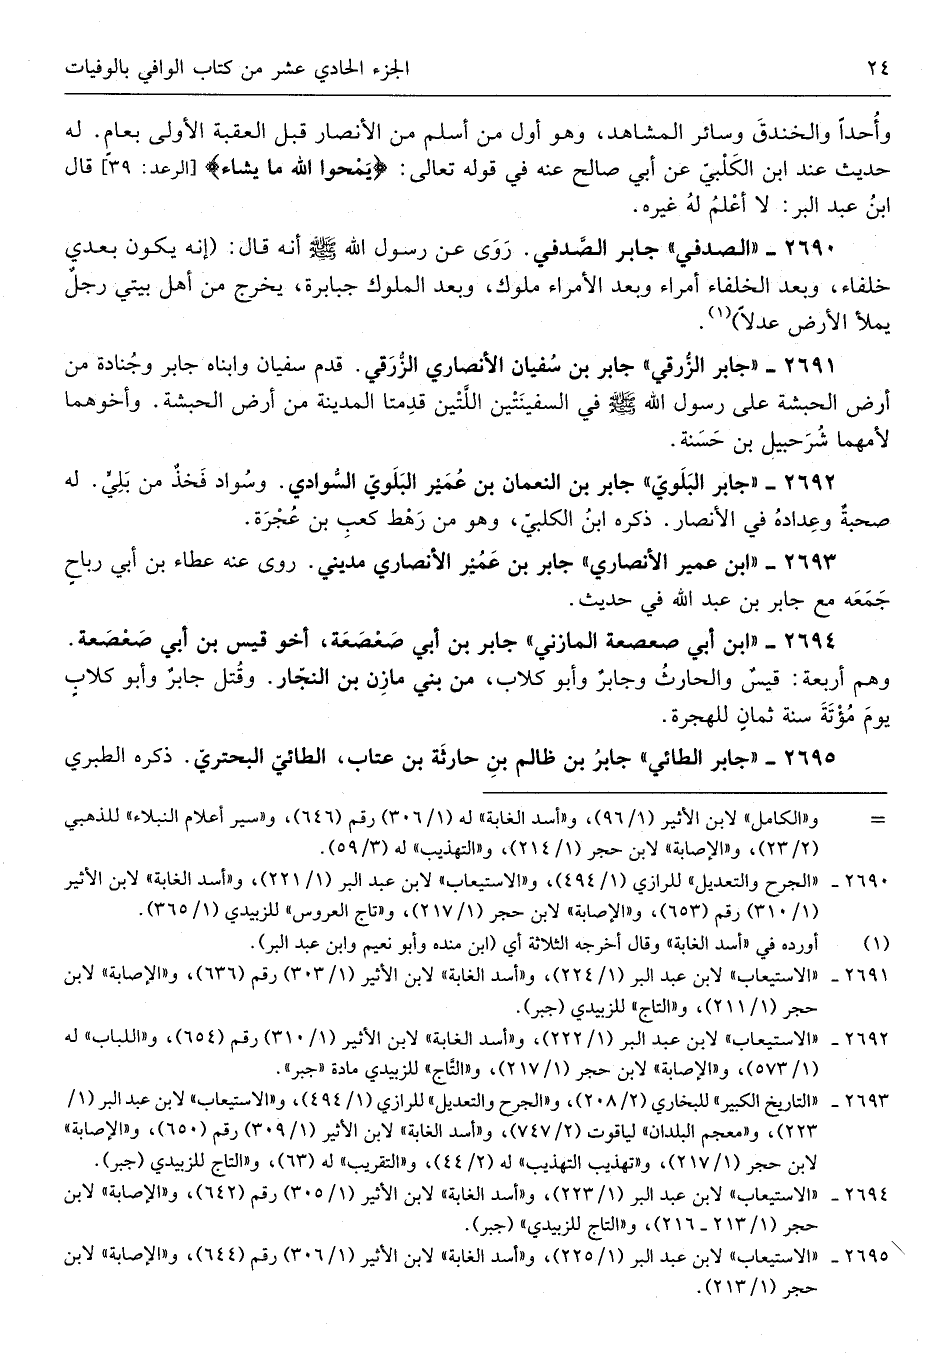 ٢٤ الجزء الحادي عشر من كتاب الوافي بالوفيات
وأُحداً والخندقَ وسائر المشاهد، وهو أول من أسلم من الأنصار قبل العقبة الأولى بعام. له
حديث عند ابن الكَلْبيّ عن أبي صالح عنه في قوله تعالى: ﴿يَمْحوا الله ما يشاء﴾ [الرعد: ٣٩] قال
ابنُ عبد البر: لا أعْلمُ لهُ غيره.
٢٦٩٠ ـ «الصدفي» جابر الصَّدفي. رَوَى عن رسول الله ﷺ أنه قال: (إنه يكون بعدي
خلفاء، وبعد الخلفاء أمراء وبعد الأمراء ملوك، وبعد الملوك جبابرة، يخرج من أهل بيتي رجلٌ
يملأ الأرض عدلاً)(١).
٢٦٩١ ـ «جابر الزُّرقي» جابر بن سُفيان الأنصاري الزُّرَقي. قدم سفيان وابناه جابر وجُنادة من
أرض الحبشة على رسول الله ﷺ في السفينَتْين اللَّتْين قدِمتا المدينة من أرض الحبشة. وأخوهما
لأمهما شُرَحبيل بن حَسَنة.
٢٦٩٢ ـ «جابر البَلَويّ» جابر بن النعمان بن عُمَيْر البَلَويّ السُّوادي. وسُواد فَخذٌ من بَلِيّ. له
صحبةٌ وعِدادهُ في الأنصار. ذكره ابنُ الكلبيّ، وهو من رَهْط كعبِ بن عُجْرَة.
٢٦٩٣ ـ «ابن عمير الأنصاري» جابر بن عَمُيْر الأنصاري مديني. روى عنه عطاء بن أبي رباحٍ
جَمَعَه مع جابر بن عبد الله في حديث.
٢٦٩٤ ـ «ابن أبي صعصعة المازني» جابر بن أبي صَعْصَعَة، أخو قيس بن أبي صَعْصَعة.
وهم أربعة: قيسٌ والحارثُ وجابرٌ وأبو كلاب، من بني مازِن بن النجّار. وقُتل جابرٌ وأبو كلابٍ
يومَ مُؤْتَةَ سنة ثمانٍ للهجرة.
٢٦٩٥ ـ «جابر الطائي» جابرُ بن ظالم بنِ حارثَة بن عتاب، الطائيّ البحتريّ. ذكره الطبري
= و«الكامل» لابن الأثير (٩٦/١)، و«أسد الغابة» له (٣٠٦/١) رقم (٦٤٦)، و«سير أعلام النبلاء» للذهبي
(٢٣/٢)، و«الإصابة» لابن حجر (٢١٤/١)، و«التهذيب» له (٥٩/٣).
٢٦٩٠ ـ «الجرح والتعديل» للرازي (٤٩٤/١)، و«الاستيعاب» لابن عبد البر (٢٢١/١)، و«أسد الغابة» لابن الأثير
(٣١٠/١) رقم (٦٥٣)، و«الإصابة» لابن حجر (٢١٧/١)، و«تاج العروس» للزبيدي (٣٦٥/١).
(١) أورده في «أسد الغابة» وقال أخرجه الثلاثة أي (ابن منده وأبو نعيم وابن عبد البر).
٢٦٩١ ـ «الاستيعاب» لابن عبد البر (٢٢٤/١)، و«أسد الغابة» لابن الأثير (٣٠٣/١) رقم (٦٣٦)، و«الإصابة» لابن
حجر (٢١١/١)، و«التاج» للزبيدي (جبر).
٢٦٩٢ ـ «الاستيعاب» لابن عبد البر (٢٢٢/١)، و«أسد الغابة» لابن الأثير (٣١٠/١) رقم (٦٥٤)، و«اللباب» له
(٥٧٣/١)، و«الإصابة» لابن حجر (٢١٧/١)، و«التَّاج» للزبيدي مادة «جبر».
٢٦٩٣ ـ «التاريخ الكبير» للبخاري (٢٠٨/٢)، و«الجرح والتعديل» للرازي (٤٩٤/١)، و«الاستيعاب» لابن عبد البر (١/
٢٢٣)، و«معجم البلدان» لياقوت (٧٤٧/٢)، و«أسد الغابة» لابن الأثير (٣٠٩/١) رقم (٦٥٠)، و«الإصابة»
لابن حجر (٢١٧/١)، و«تهذيب التهذيب» له (٤٤/٢)، و«التقريب» له (٦٣)، و«التاج للزبيدي (جبر).
٢٦٩٤ ـ «الاستيعاب» لابن عبد البر (٢٢٣/١)، و«أسد الغابة» لابن الأثير (٣٠٥/١) رقم (٦٤٢)، و«الإصابة» لابن
حجر (٢١٣/١ ـ ٢١٦)، و«التاج للزبيدي» (جبر).
٢٦٩٥ ـ «الاستيعاب» لابن عبد البر (٢٢٥/١)، و«أسد الغابة» لابن الأثير (٣٠٦/١) رقم (٦٤٤)، و«الإصابة» لابن
حجر (٢١٣/١).